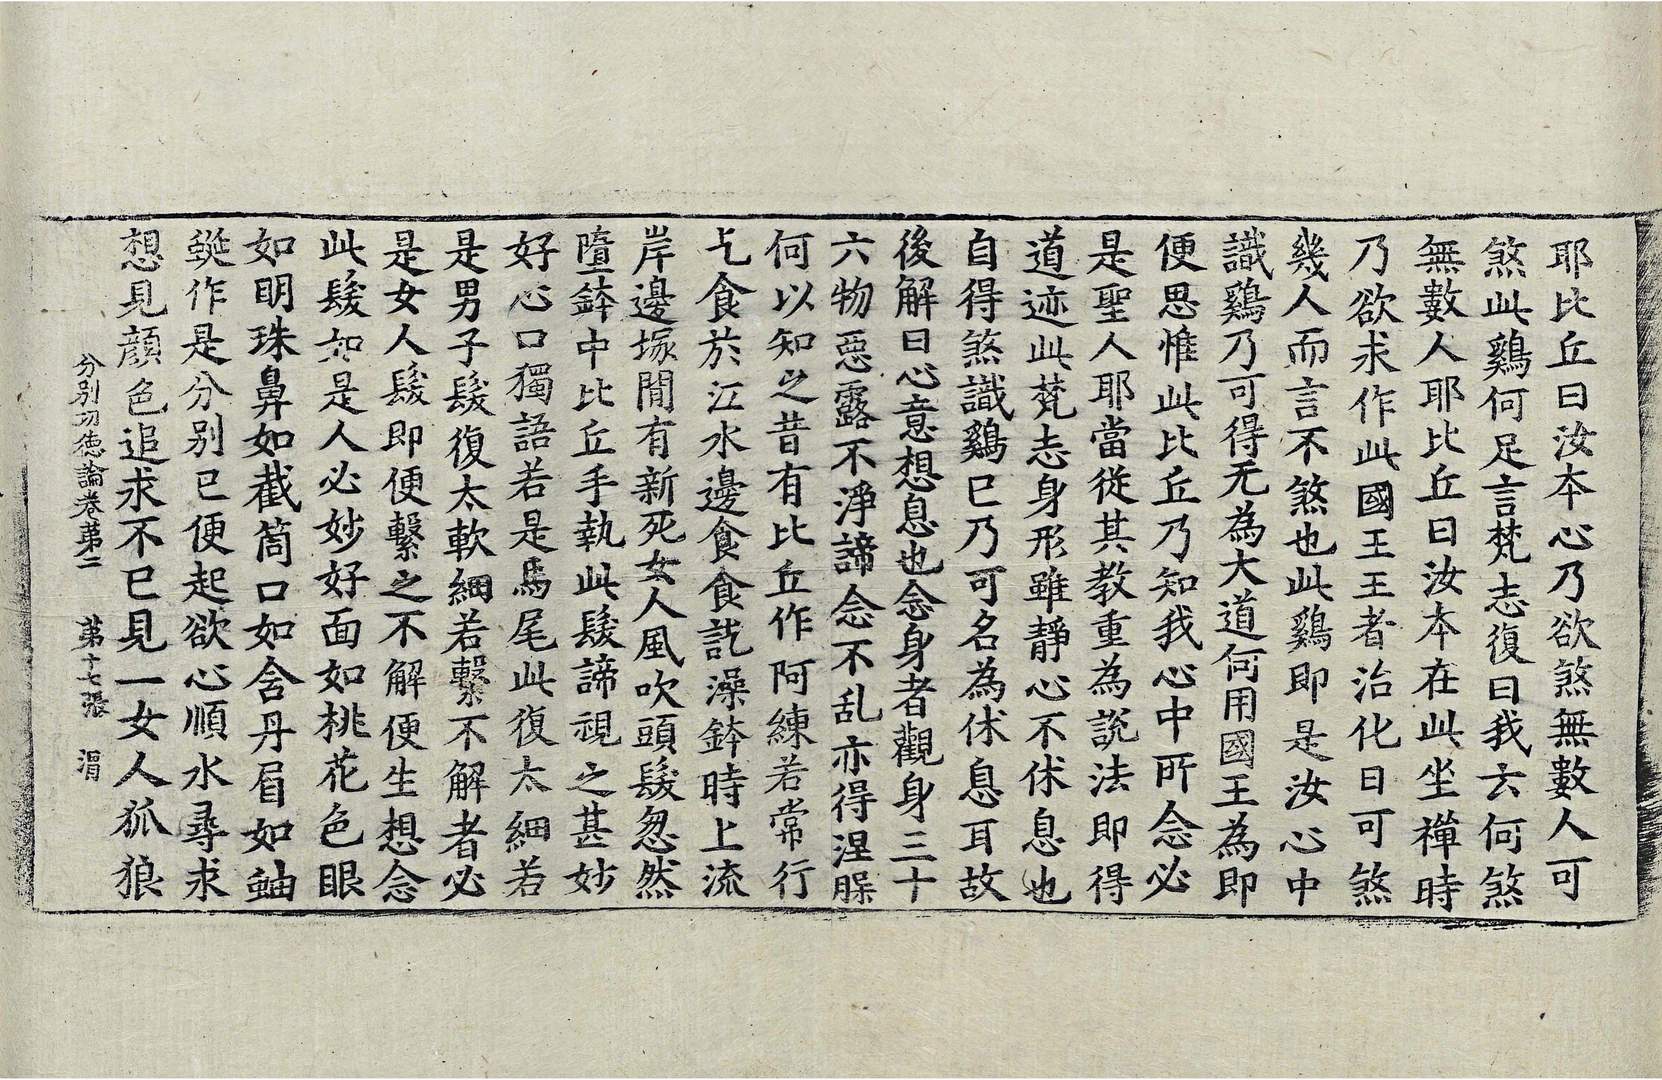 耶比丘曰汝本心乃欲煞無數人可
煞此鷄何足言梵志復曰我云何煞
無數人耶比丘曰汝本在此坐禪時
乃欲求作此國王王者治化日可煞
幾人而言不煞也此鷄即是汝心中
識鷄乃可得无為大道何用國王為即
便思惟此比丘乃知我心中所念必
是聖人耶當從其教重為說法即得
道迹此梵志身形雖靜心不休息也
自得煞識鷄已乃可名為休息耳故
後解曰心意想息也念身者觀身三十
六物惡露不淨諦念不乱亦得涅𣵀
何以知之昔有比丘作阿練若常行
乞食於江水邊食食訖澡鉢時上流
岸邊塚間有新死女人風吹頭髮忽然
墮鉢中比丘手執此髮諦視之甚妙
好心口獨語若是馬尾此復太細若
是男子髮復太軟細若繫不解者必
是女人髮即便繫之不解便生想念
此髮如是人必妙好面如桃花色眼
如明珠鼻如截筒口如含丹眉如蚰
蜒作是分別已便起欲心順水尋求
想見顏色追求不已見一女人狐狼
分別功徳論卷苐二　苐十七張　渭